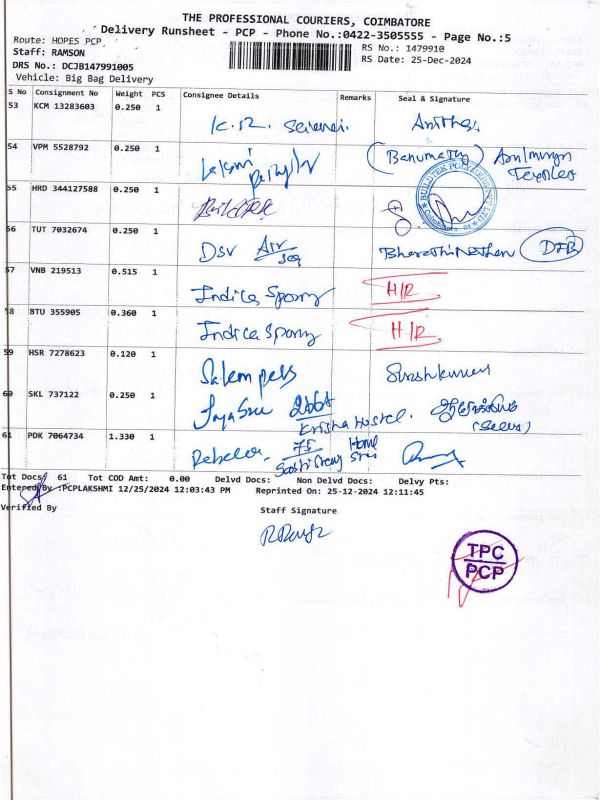 THE PROFESSIONAL COURIERS, COIMBATORE
Delivery Runsheet - PCP - Phone No.:0422-3505555 - Page No.:5
Route: HOPES PCP
RS No.: 1479910
Staff: RAMSON
RS Date: 25-Dec-2024
DRS No.: DCJB147991005
Vehicle: Big Bag Delivery
S No Consignment No Weight PCS Consignee Details Remarks Seal & Signature
53 KCM 13283603 0.250 1 K.R.
54 VPM 5528792 0.250 1 Lakshmi (Banumathy)
55 HRD 344127588 0.250 1 BUILDTEK
56 TUT 7032674 0.250 1 DSV Air Bharathi Nathan
57 VNB 219513 0.515 1 Indica H/R
58 BTU 355905 0.360 1 Indica H/R
59 HSR 7278623 0.120 1 Sureshkumar
60 SKL 737122 0.250 1 Jayasree Hostel.
61 PDK 7064734 1.330 1 Home
Tot Docs: 61 Tot COD Amt: 0.00 Delvd Docs: Non Delvd Docs: Delvy Pts:
Entered By :PCPLAKSHMI 12/25/2024 12:03:43 PM Reprinted On: 25-12-2024 12:11:45
Verified By Staff Signature
TPC
PCP